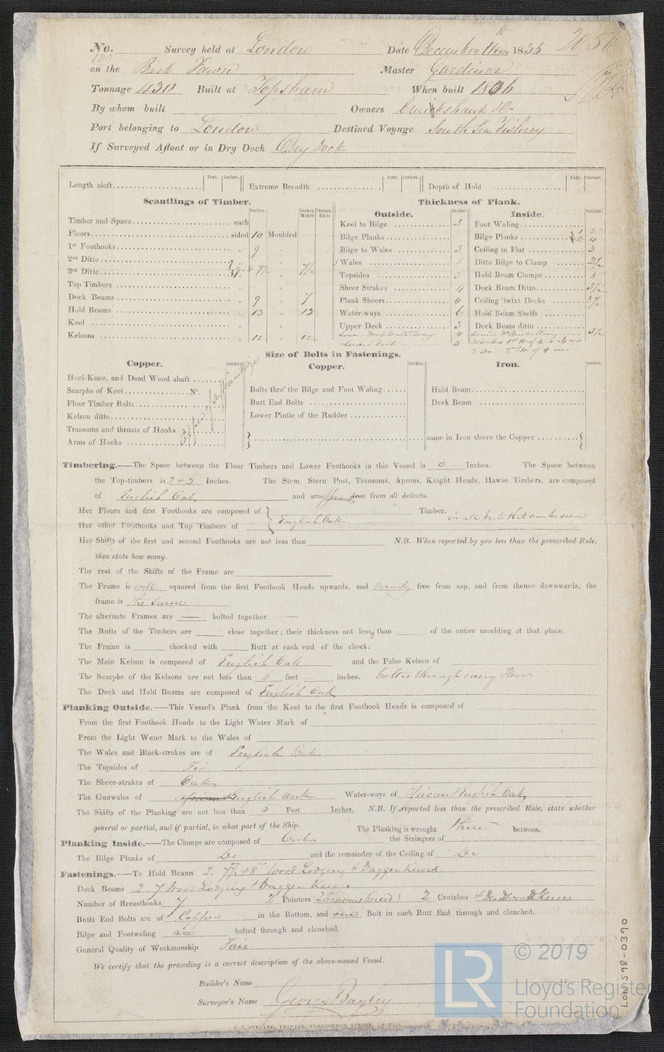 No. Survey held at London Date December 1835
on the Bark Fawn Master Gardiner
Tonnage 430 Built at Topsham When built
By whom built Owners Cruickshank
Port belonging to London Destined Voyage South Sea Fishery
If Surveyed Afloat or in Dry Dock Dry Dock
Length aloft Feet. Inches. Extreme Breadth Feet. Inches. Depth of Hold Feet. Inches.
Scantlings of Timber.
Timber and Space each
Floors sided 10 Moulded
1st Foothooks 9
2nd Ditto
3rd Ditto
Top Timbers
Deck Beams 9 7
Hold Beams 13 12
Keel
Kelsons 10 10
Thickness of Plank.
Outside.
Keel to Bilge 3
Bilge Planks
Bilge to Wales 3
Wales
Topsides
Sheer Strakes 4
Plank Sheers 4
Water-ways 6
Upper Deck 3
Inside.
Foot Waling
Bilge Planks 4
Ceiling in Flat 3
Ditto Bilge to Clamp
Hold Beam Clamps
Deck Beam Ditto
Ceiling 'twixt Decks
Hold Beam Shelfs
Deck Beam ditto
Size of Bolts in Fastenings.
Copper.
Heel-Knee, and Dead Wood abaft
Scarphs of Keel No.
Floor Timber Bolts
Kelson ditto
Transoms and throats of Hooks
Arms of Hooks
Copper.
Bolts thro' the Bilge and Foot Waling
Butt End Bolts
Lower Pintle of the Rudder
Iron.
Hold Beam
Deck Beam
same in Iron above the Copper
Timbering.—The Space between the Floor Timbers and Lower Foothooks in this Vessel is 0 Inches. The Space between
the Top-timbers is 2 & 3 Inches. The Stem, Stern Post, Transoms, Aprons, Knight Heads, Hawse Timbers, are composed
of English Oak and are free from all defects.
Her Floors and first Foothooks are composed of Timber,
Her other Foothooks and Top Timbers of English Oak
Her Shifts of the first and second Foothooks are not less than N.B. When reported by you less than the prescribed Rule,
then state how many.
The rest of the Shifts of the Frame are
The Frame is well squared from the first Foothook Heads upwards, and free from sap, and from thence downwards, the
frame is the same
The alternate Frames are bolted together.
The Butts of the Timbers are close together; their thickness not less than of the entire moulding at that place.
The Frame is chocked with Butt at each end of the chock.
The Main Kelson is composed of English Oak and the False Kelson of
The Scarphs of the Kelsons are not less than 5 feet inches. bolted through every floor
The Deck and Hold Beams are composed of English Oak
Planking Outside.—This Vessel's Plank from the Keel to the first Foothook Heads is composed of
From the first Foothook Heads to the Light Water Mark of
From the Light Water Mark to the Wales of
The Wales and Black-strakes are of English Oak
The Topsides of Fir
The Sheer-strakes of Oak
The Gunwales of English Oak Water-ways of African & English Oak
The Shifts of the Planking are not less than 5 Feet Inches. N.B. If reported less than the prescribed Rule, state whether
general or partial, and if partial, in what part of the Ship. The Planking is wrought Three between.
Planking Inside.—The Clamps are composed of Oak the Stringers of
The Bilge Planks of Do and the remainder of the Ceiling of Do
Fastenings.—To Hold Beams Wood Lodging & Dagger Knees
Deck Beams 2-7 Wood Lodging & Dagger Knees
Number of Breasthooks 7 Pointers 2 Crutches
Butts End Bolts are of Copper in the Bottom, and one Bolt in each Butt End through and clenched.
Bilge and Footwaling are bolted through and clenched.
General Quality of Workmanship Fair
We certify that the preceding is a correct description of the above-named Vessel.
Builder's Name
Surveyor's Name George Bayley
LR © 2019
Lloyd's Register
Foundation
LON 598-0390